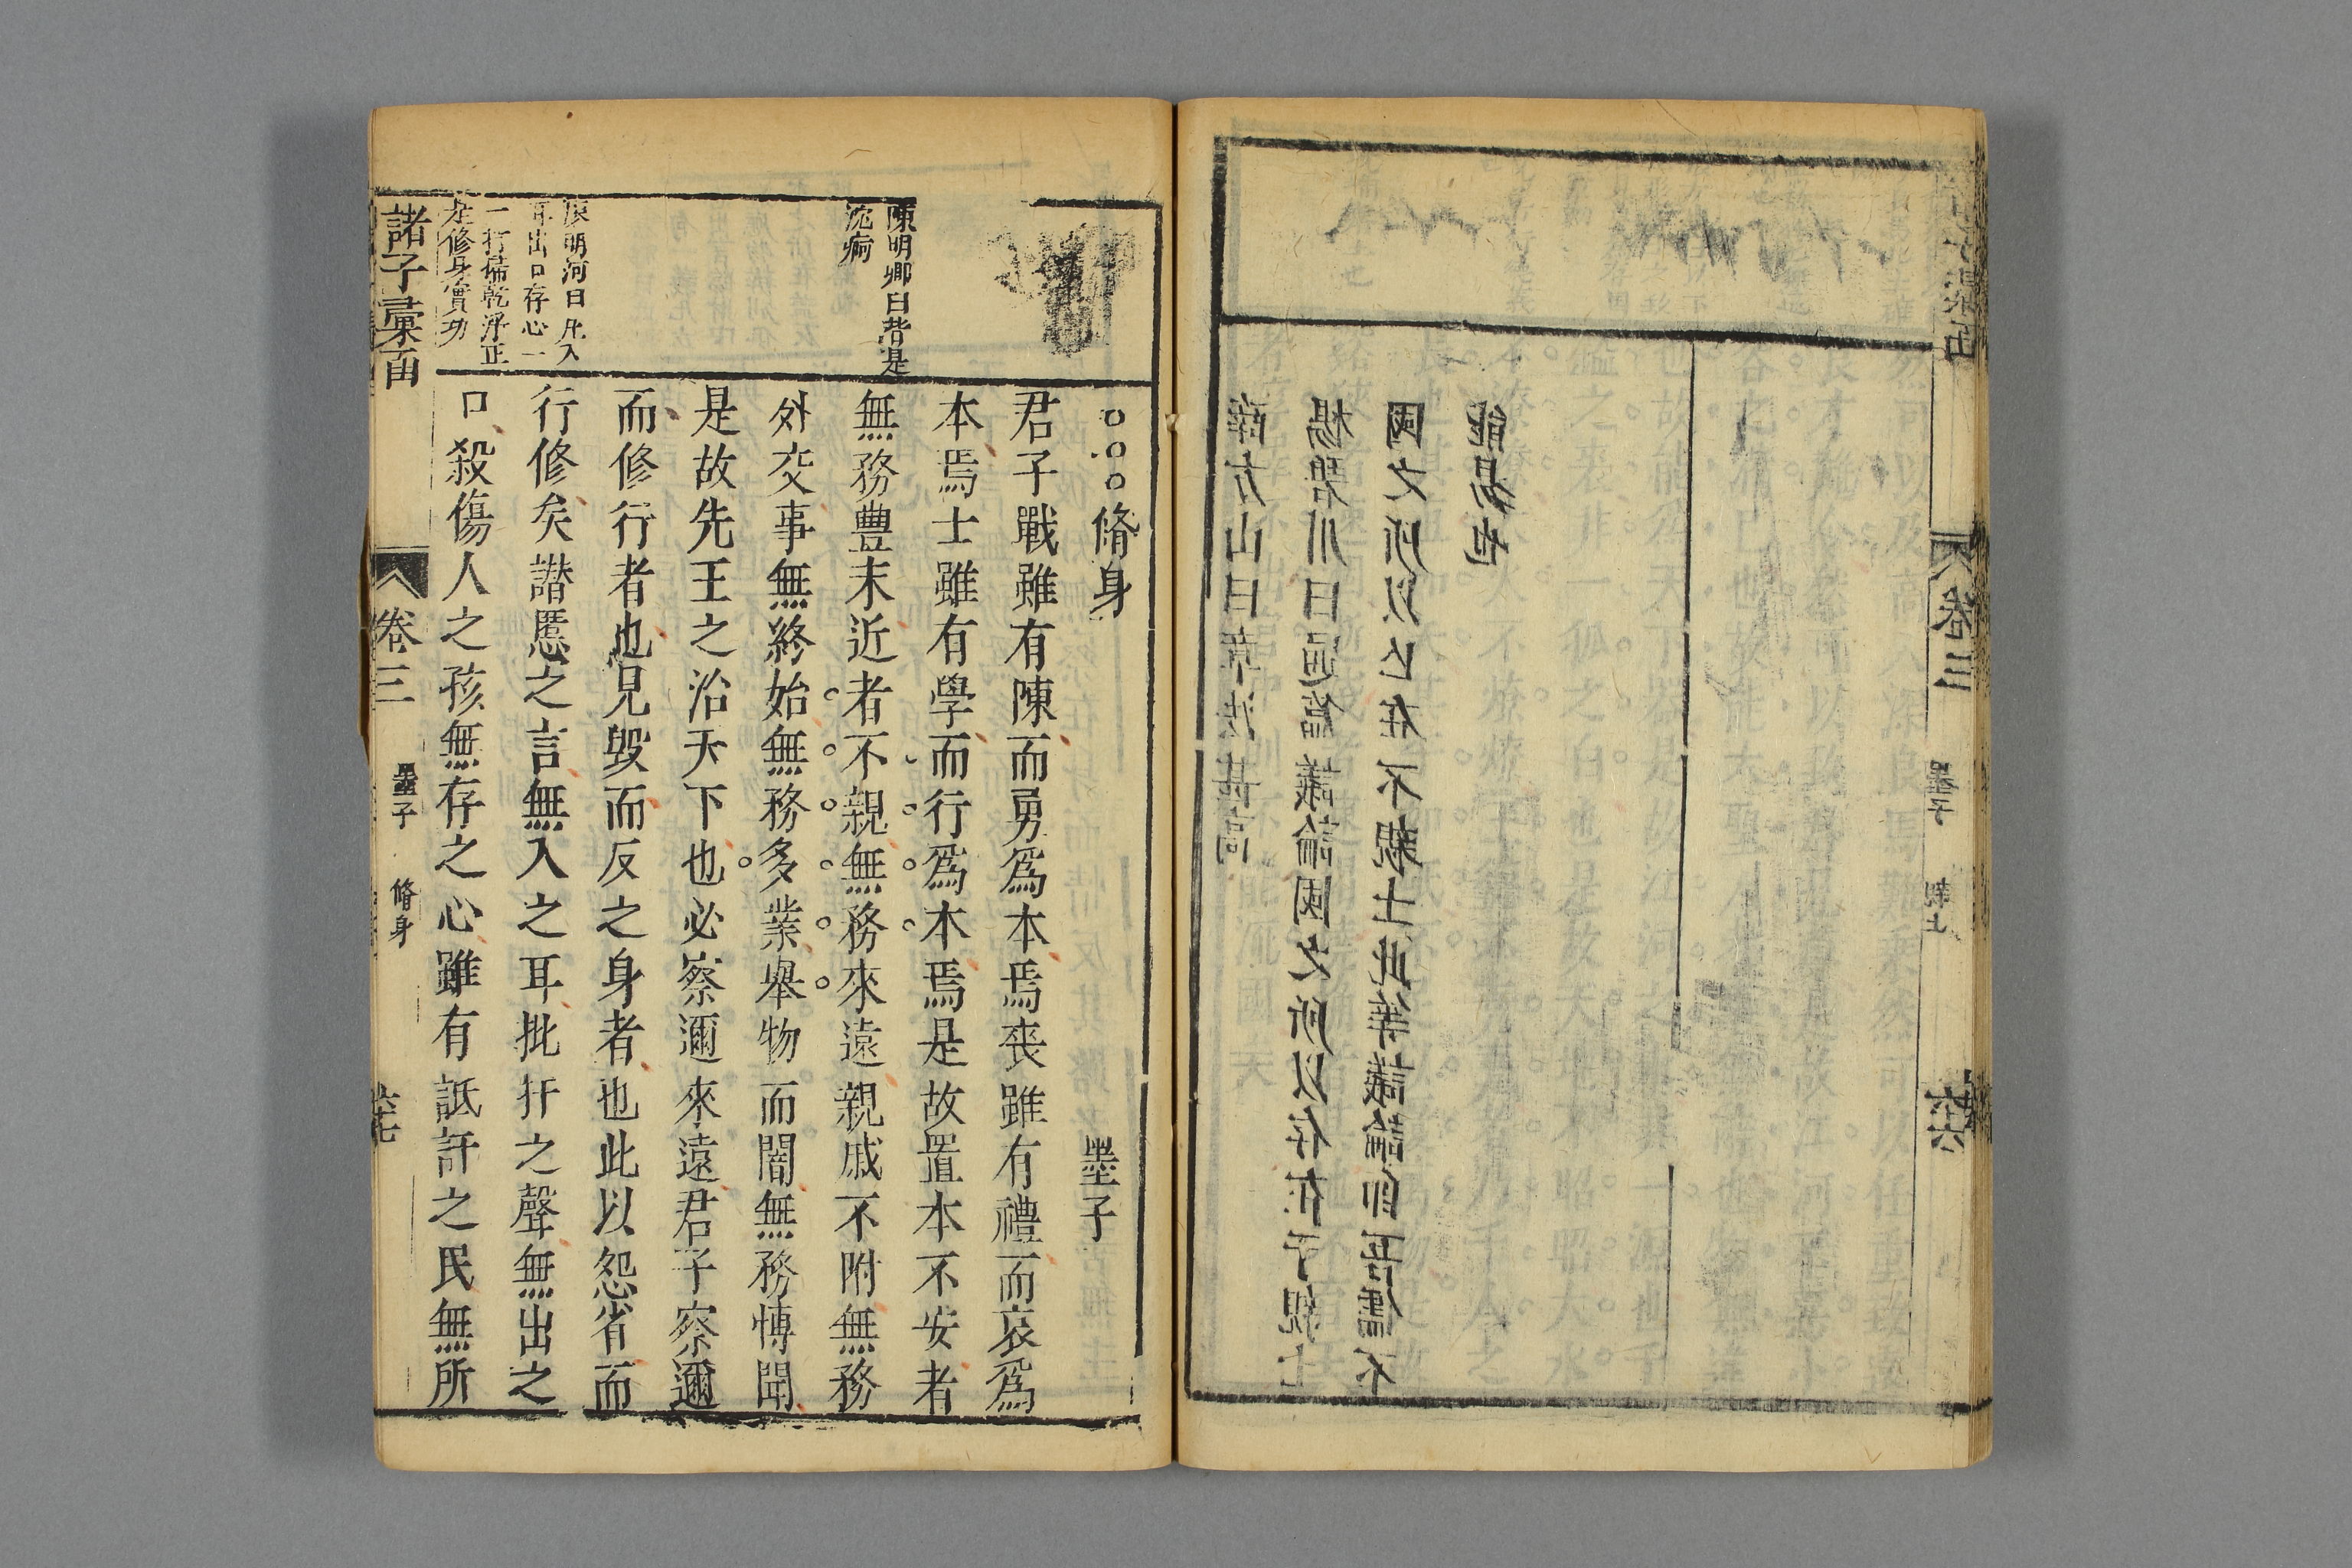 薛方山曰章法甚高
楊碧川曰通篇議論國之所以存在于親士
國之所以亡在不親士此等議論卽吾儒不
能易也
卷三 墨子 親士 六十六
陳明卿曰皆是
沈痾
明河曰凡入
耳出口存心一
一打偏乾淨正
是修身實功
脩身 墨子
君子戰雖有陳而勇爲本焉喪雖有禮而哀爲
本焉士雖有學而行爲本焉是故置本不安者
無務豐末近者不親無務來遠親戚不附無務
外交事無終始無務多業舉物而闇無務慱聞
是故先王之治天下也必察邇來遠君子察邇
而修行者也見毀而反之身者也此以怨省而
行修矣譖慝之言無入之耳批扞之聲無出之
口殺傷人之孩無存之心雖有詆訐之民無所
諸子彙函 卷三 墨子 脩身 六十七